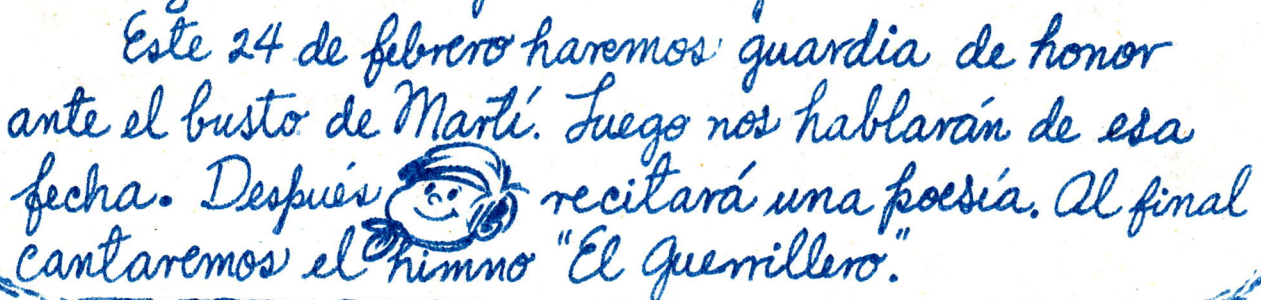 Este 24 de febrero haremos guardia de honor
ante el busto de Martí. Luego nos hablarán de esa
fecha. Después recitará una poesía. Al final
cantaremos el himno "El Guerrillero."